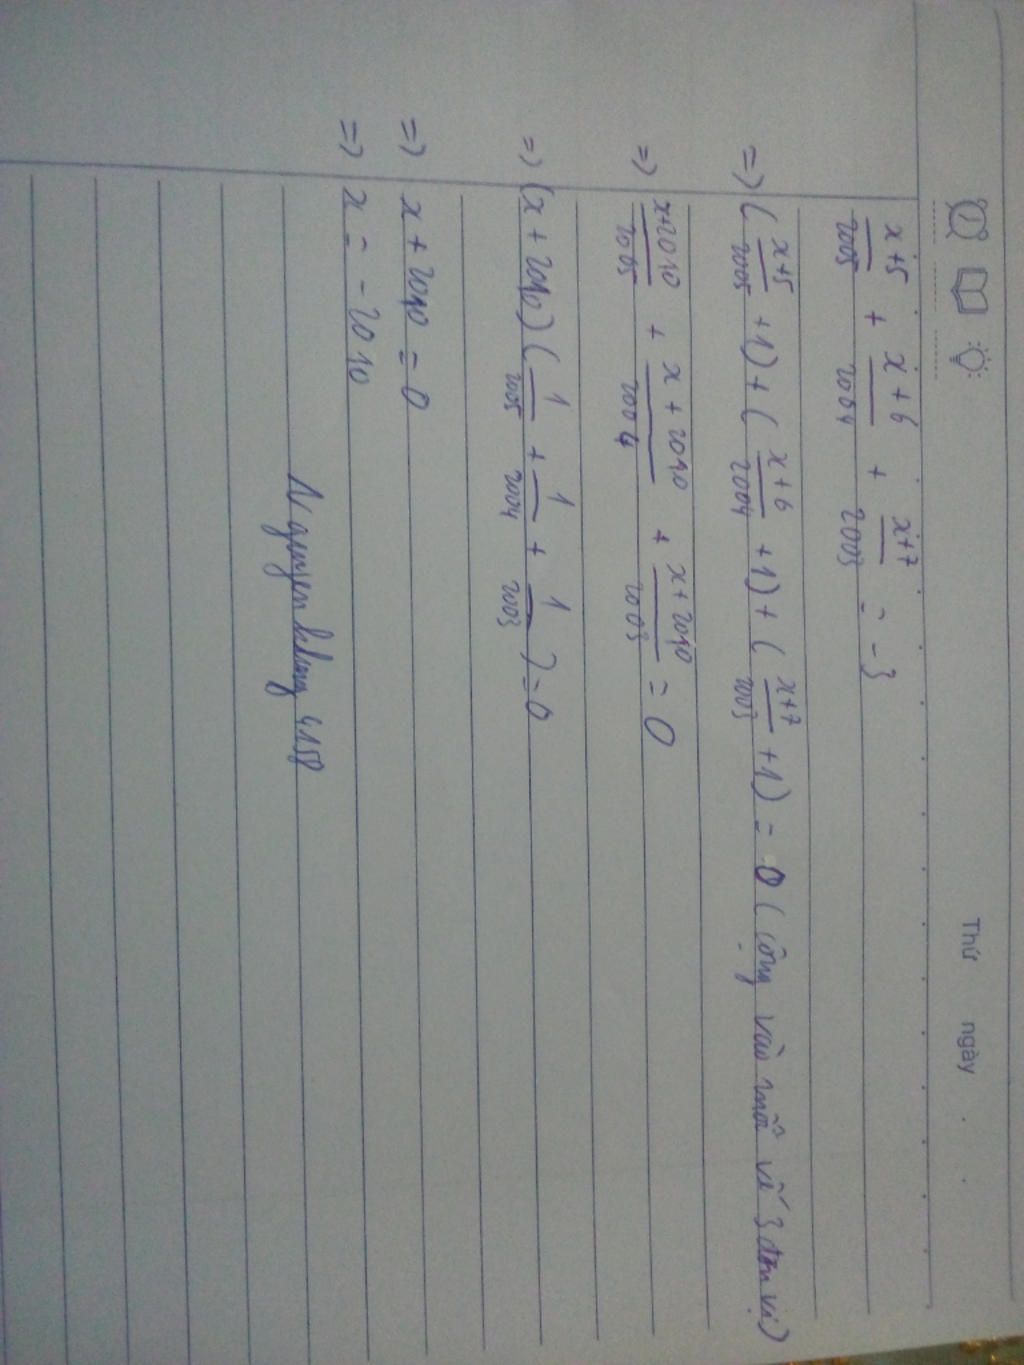 Thứ ngày
x+5/2005 + x+6/2004 + x+7/2003 = -3
=> (x+5/2005 +1) + (x+6/2004 +1) + (x+7/2003 +1) = 0 (cộng vào mỗi vế 3 đơn vị)
=> x+2010/2005 + x+2010/2004 + x+2010/2003 = 0
=> (x+2010)(1/2005 + 1/2004 + 1/2003) = 0
=> x+2010 = 0
=> x = -2010
Nguyen 4158